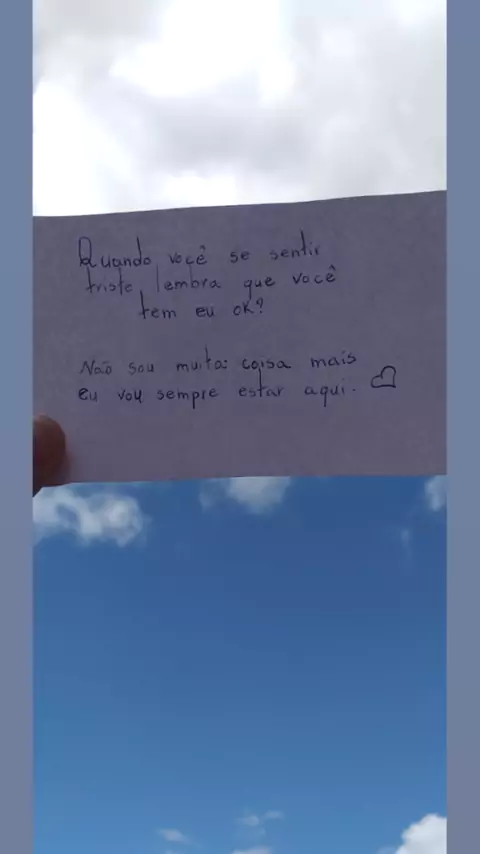 Quando você se sentir
triste, lembra que você
tem eu ok?
Não sou muita coisa mais
eu vou sempre estar aqui.